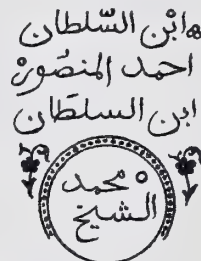 ابْن السّلطان
احمد المنصُورْ
ابن السلطان
محمد
الشيخ